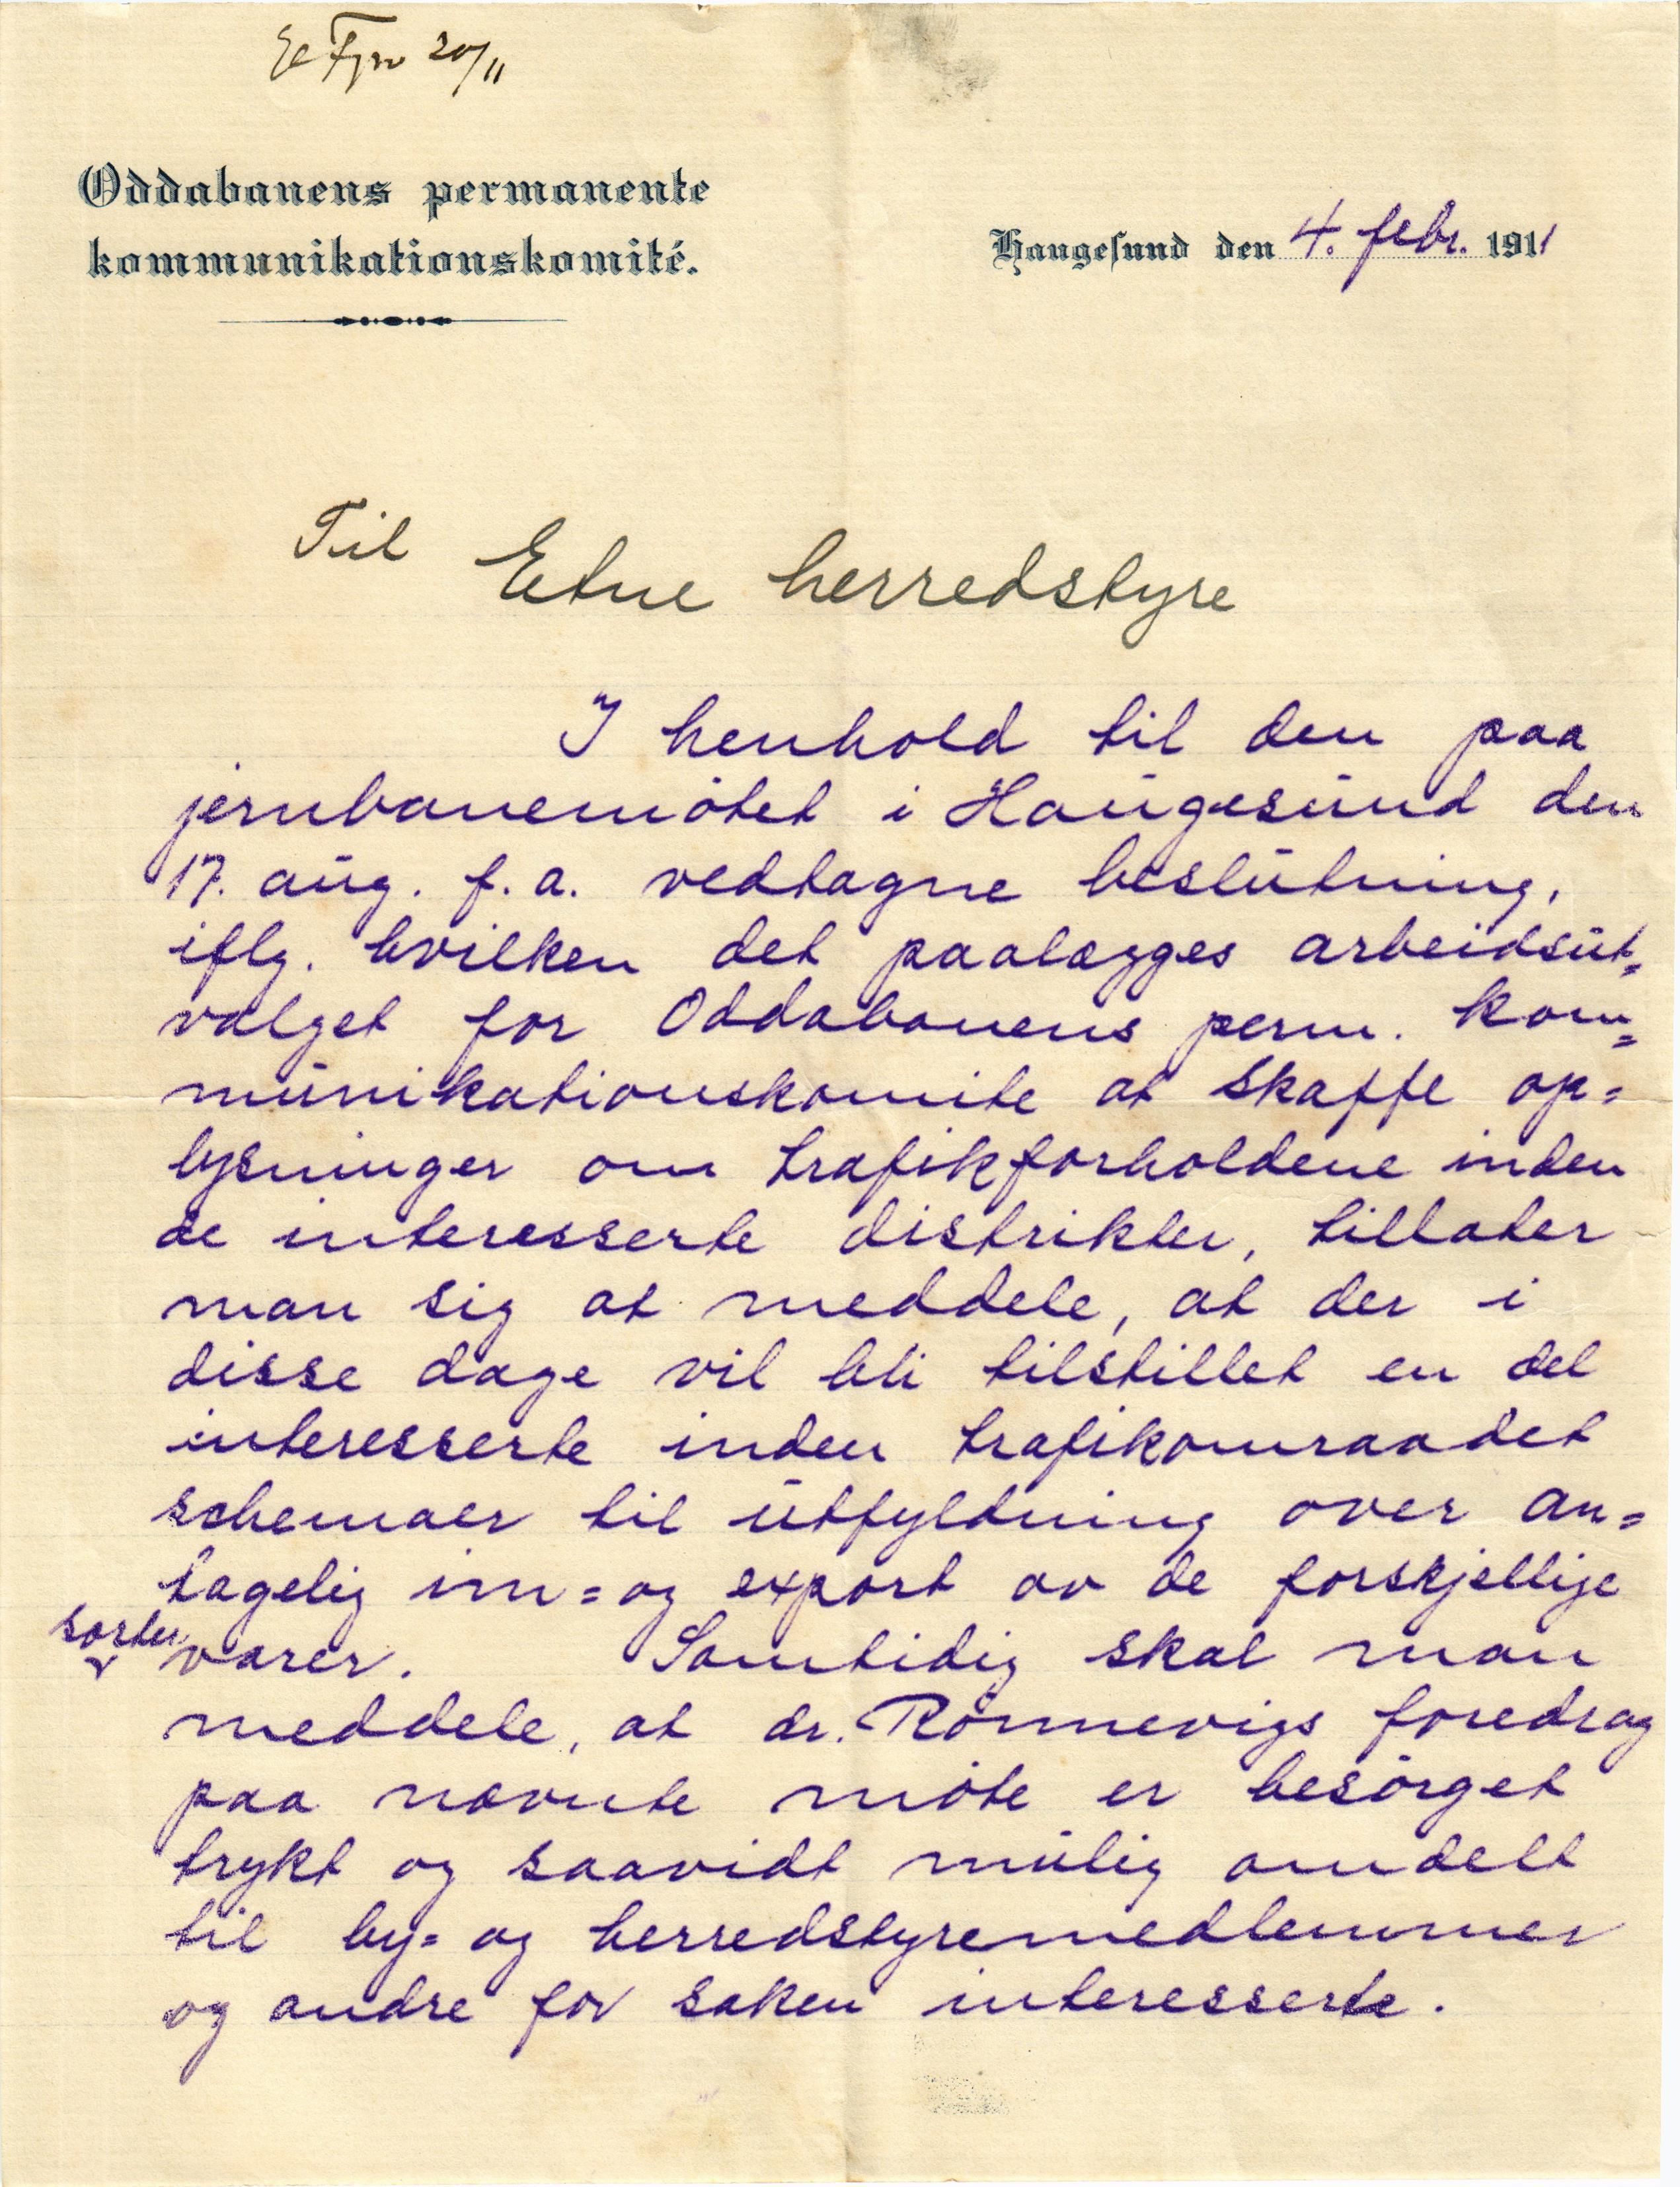 20/11
Oddabanens permanente
kommunikationskomité.
Haugesund den 4. febr. 1911
Til Etne herredstyre
I henhold til den paa
jernbanemötet i Haugesund den
17. aug. f. a. vedtagne beslutning,
iflg. hvilken det paalægges arbeidsut=
valget for Oddabanens perm. kom=
munikationskomite at skaffe op=
lysninger om trafikforholdene inden
de interesserte distrikter, tillater
man sig at meddele, at der i
disse dage vil bli tilstillet en del
interesserte inden trafikomraadet
schemaer til utfyldning over an=
tagelig inn= og export av de forskjellige
sorter varer. Samtidig skal man
meddele, at dr. Rönnevigs foredrag
paa nævnte möte er besörget
trykt og saavidt mulig omdelt
til by= og herredstyremedlemmer
og andre for saken interesserte.